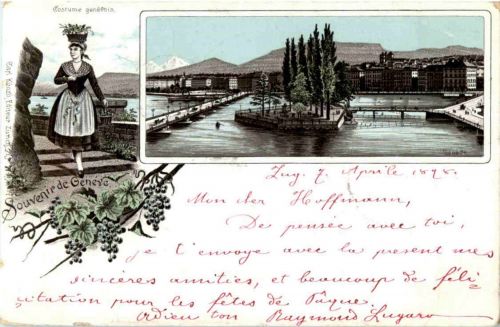 Costume genévois.
Carl Künzli, Editeur, Zurich
Souvenir de Genève
Zug. 7. Aprile 1898.
Mon cher Hoffmann,
De pensée avec toi,
je t'envoye avec la present mes
sincères amitiés, et beaucoup de féli-
citation pour les fêtes de Pâque.
Adieu ton Raymond Lugaro